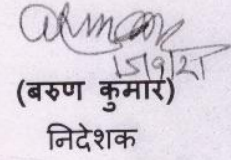 15/9/21
(बरुण कुमार)
निदेशक